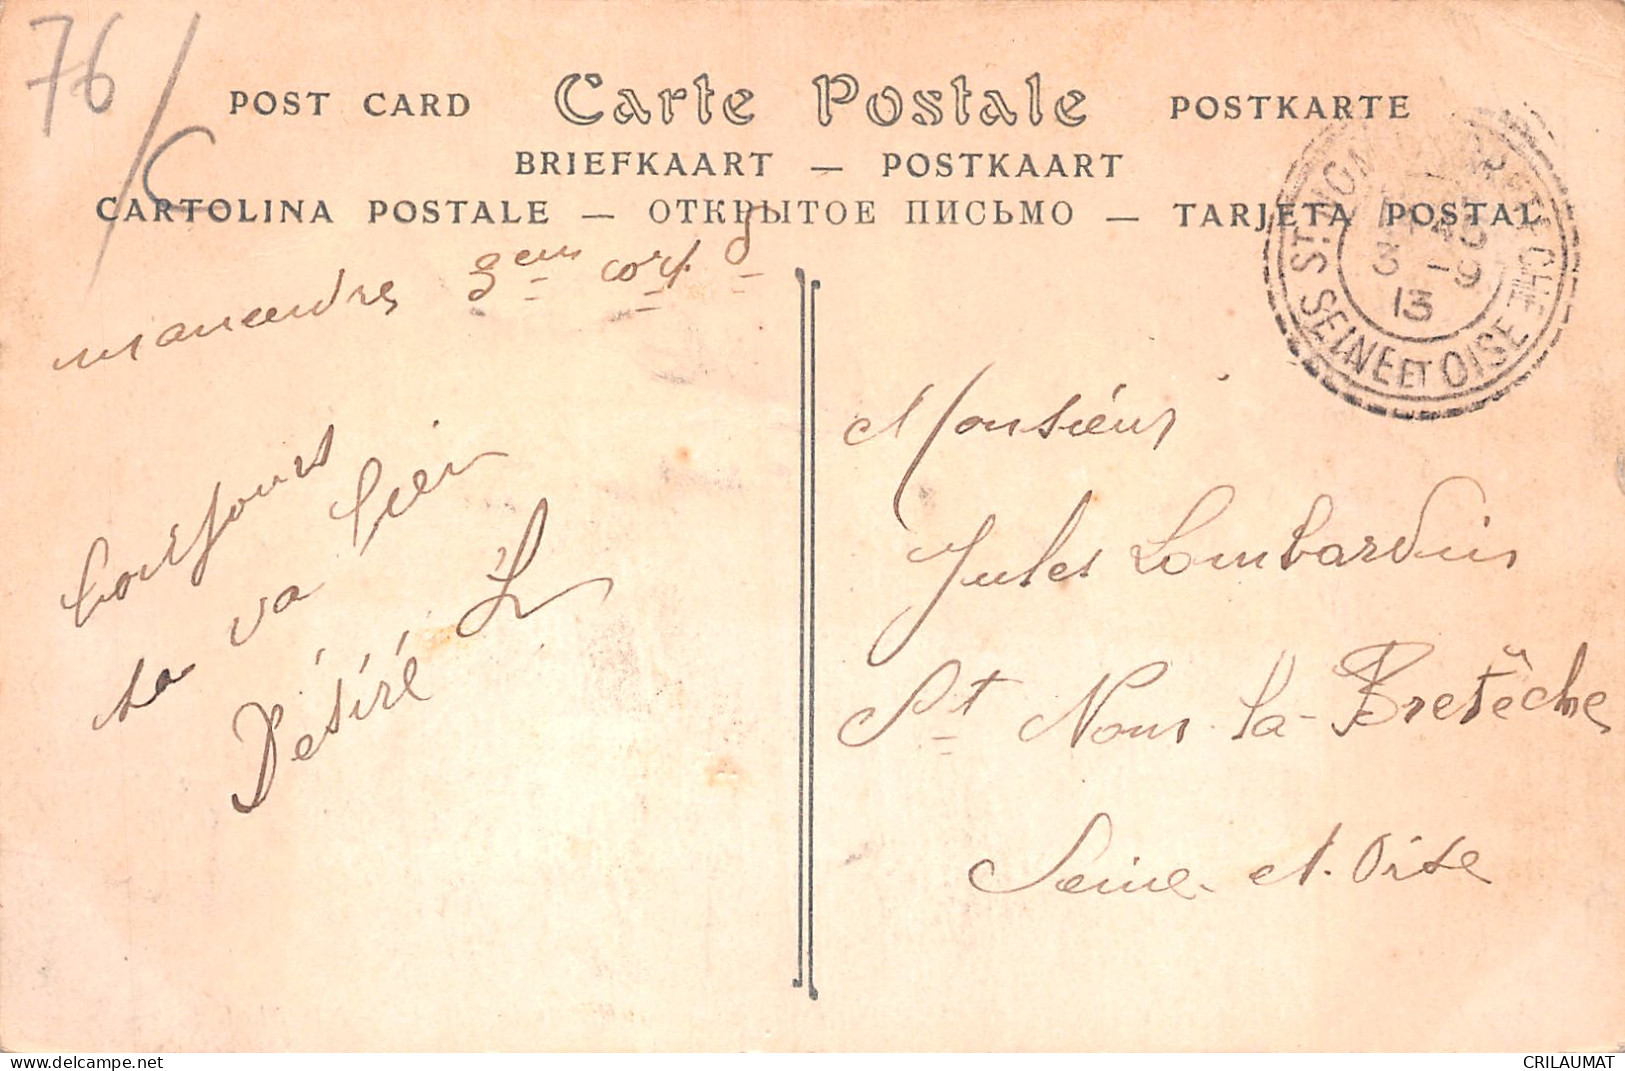 76/
C
POST CARD Carte Postale POSTKARTE
BRIEFKAART — POSTKAART
CARTOLINA POSTALE — ОТКРЫТОЕ ПИСЬМО — TARJETA POSTAL
ST NOM
SEINE ET OISE
3 - 9
13
3em corp
Toutjours
sa va bien
Désiré L
Monsieur
Jules Lombardin
St Nom-la-Bretêche
Seine-et-Oise
www.delcampe.net
CRILAUMAT